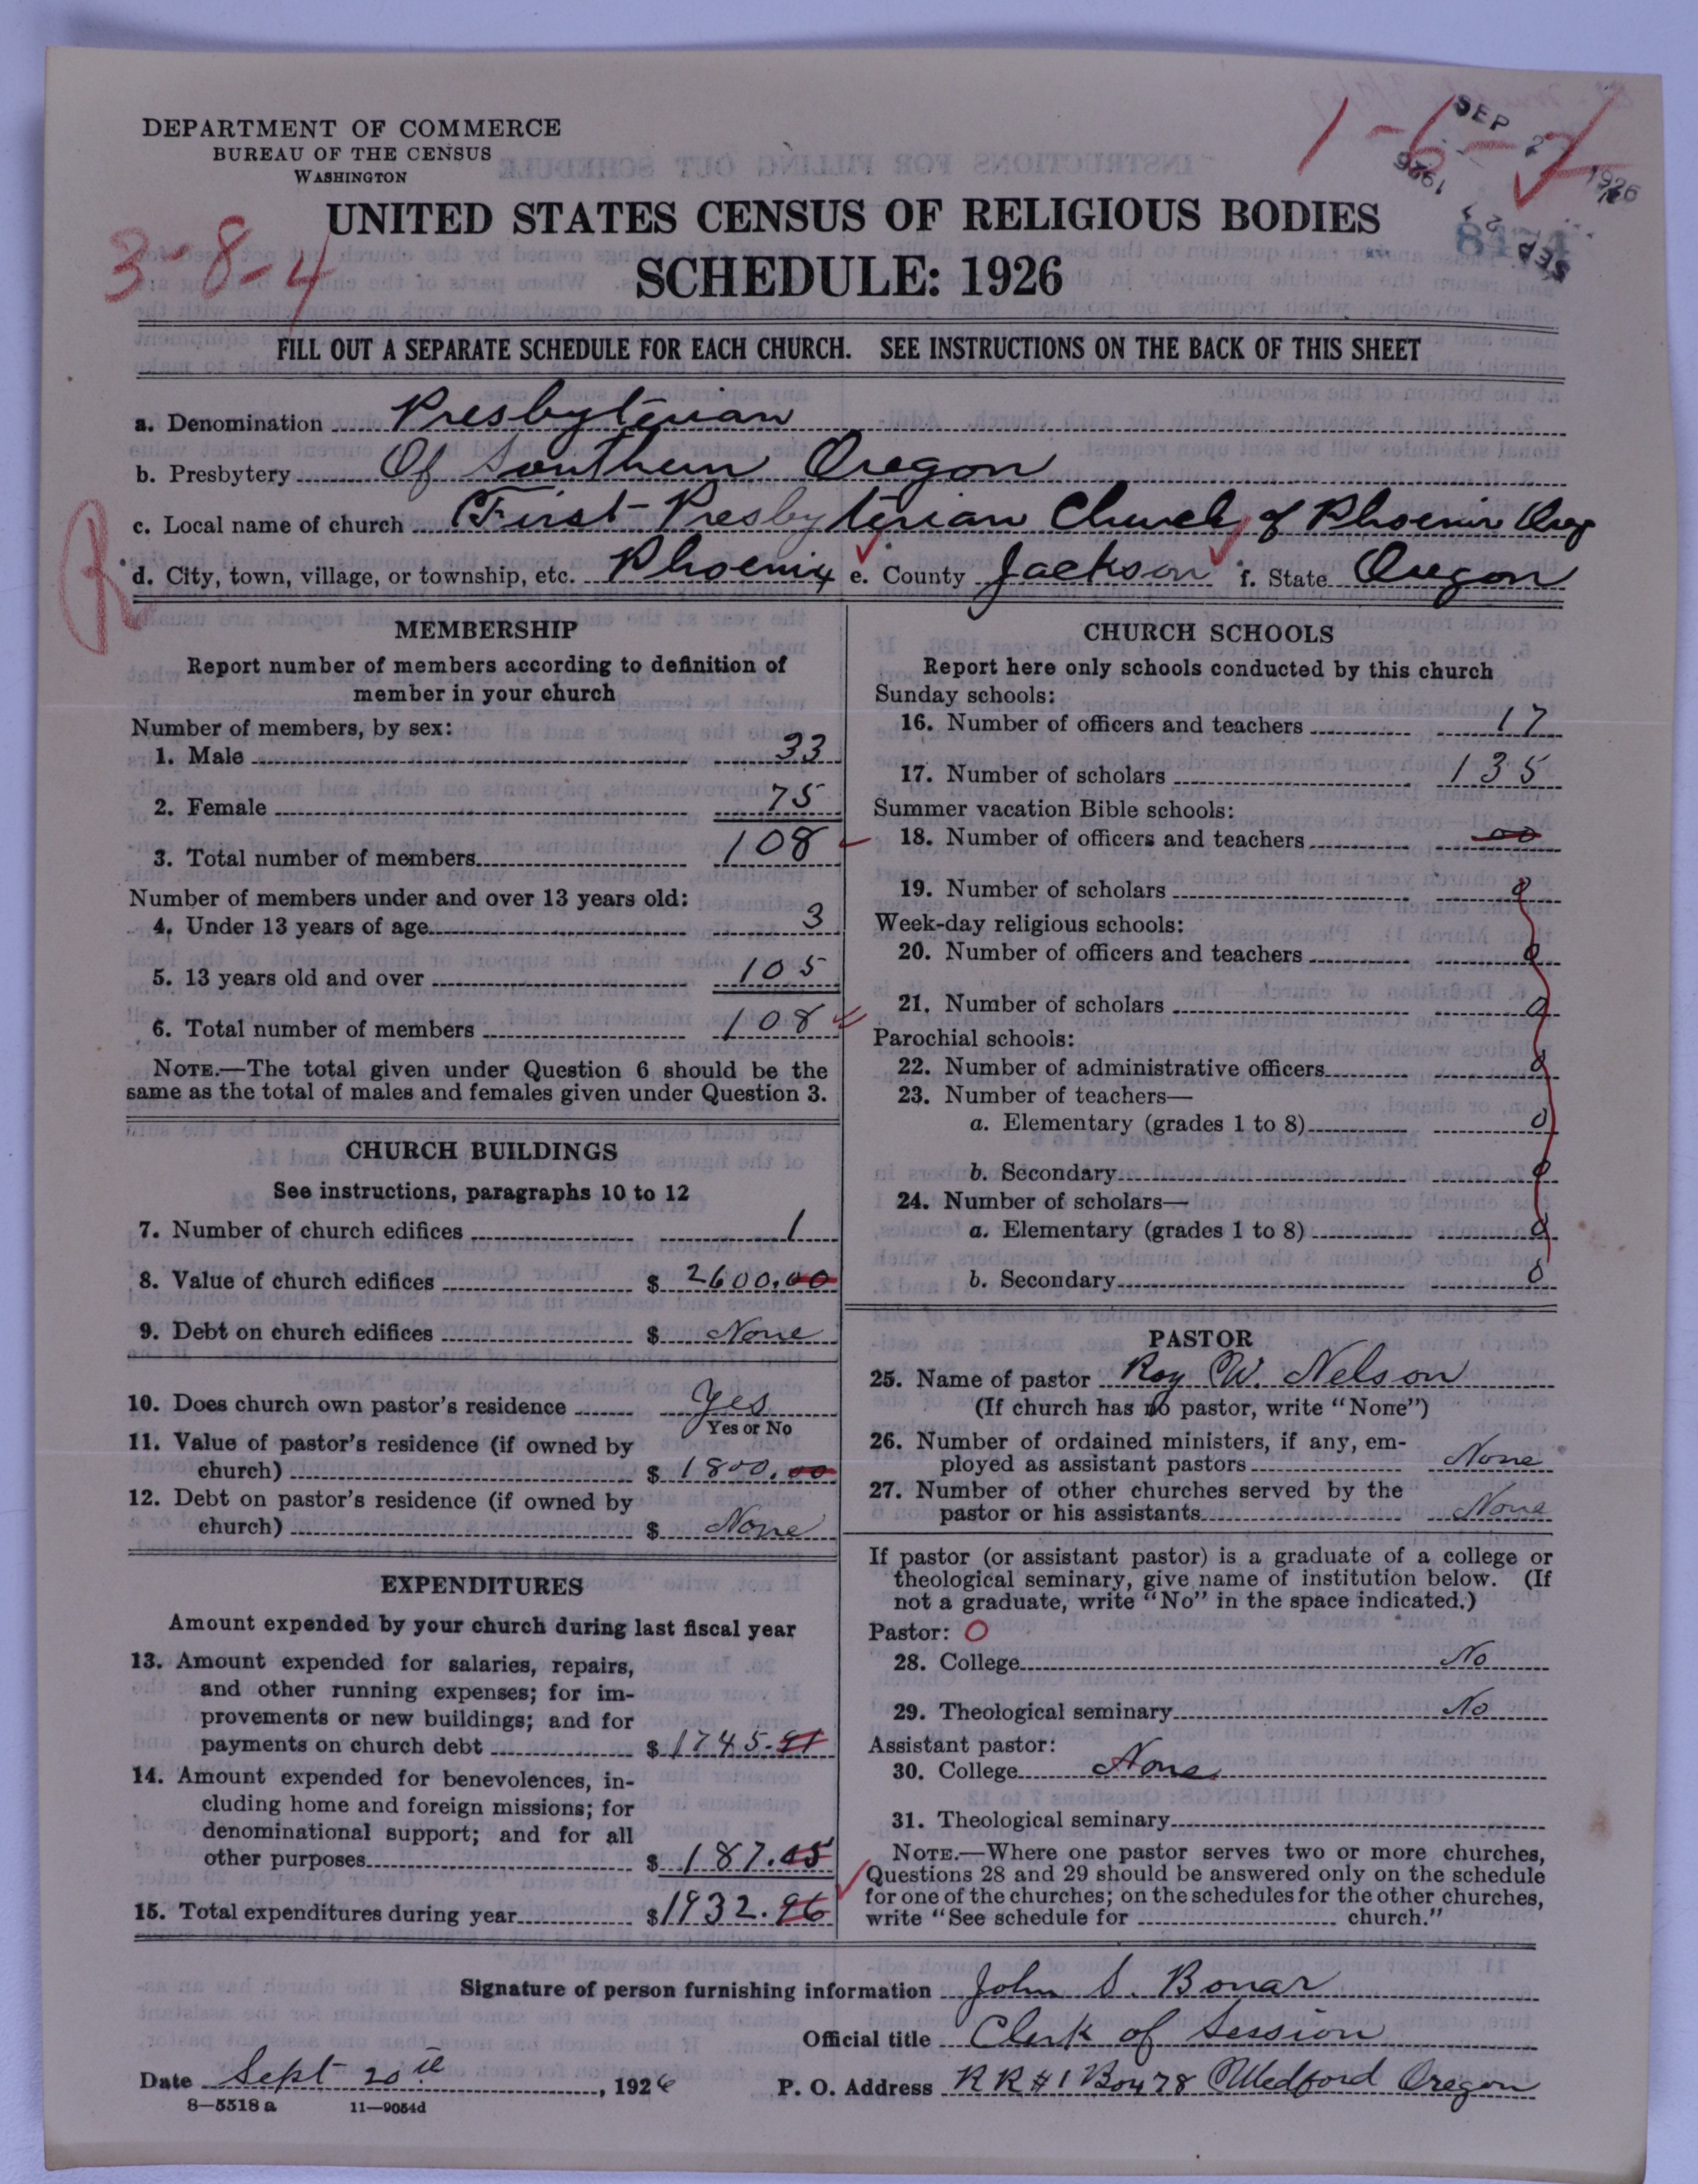 DEPARTMENT OF COMMERCE
BUREAU OF THE CENSUS
WASHINGTON
1-6-
SEP 2 1926
SEP 2 1926
3-8-4
UNITED STATES CENSUS OF RELIGIOUS BODIES
SCHEDULE: 1926
FILL OUT A SEPARATE SCHEDULE FOR EACH CHURCH. SEE INSTRUCTIONS ON THE BACK OF THIS SHEET
a. Denomination Presbyterian
b. Presbytery Of Southern Oregon
R
c. Local name of church First Presbyterian Church of Phoenix Oreg
d. City, town, village, or township, etc. Phoenix e. County Jackson f. State Oregon
MEMBERSHIP
Report number of members according to definition of
member in your church
Number of members, by sex:
1. Male 33
2. Female 75
3. Total number of members 108
Number of members under and over 13 years old:
4. Under 13 years of age 3
5. 13 years old and over 105
6. Total number of members 108
NOTE.—The total given under Question 6 should be the
same as the total of males and females given under Question 3.
CHURCH BUILDINGS
See instructions, paragraphs 10 to 12
7. Number of church edifices 1
8. Value of church edifices $ 2600.00
9. Debt on church edifices $ None
10. Does church own pastor's residence Yes
Yes or No
11. Value of pastor's residence (if owned by
church) $ 1800.00
12. Debt on pastor's residence (if owned by
church) $ None
EXPENDITURES
Amount expended by your church during last fiscal year
13. Amount expended for salaries, repairs,
and other running expenses; for im-
provements or new buildings; and for
payments on church debt $ 1745.51
14. Amount expended for benevolences, in-
cluding home and foreign missions; for
denominational support; and for all
other purposes $ 187.45
15. Total expenditures during year $ 1932.96
CHURCH SCHOOLS
Report here only schools conducted by this church
Sunday schools:
16. Number of officers and teachers 17
17. Number of scholars 135
Summer vacation Bible schools:
18. Number of officers and teachers 00
19. Number of scholars 0
Week-day religious schools:
20. Number of officers and teachers 0
21. Number of scholars 0
Parochial schools:
22. Number of administrative officers 0
23. Number of teachers—
a. Elementary (grades 1 to 8) 0
b. Secondary 0
24. Number of scholars—
a. Elementary (grades 1 to 8) 0
b. Secondary 0
PASTOR
25. Name of pastor Roy W. Nelson
(If church has no pastor, write "None")
26. Number of ordained ministers, if any, em-
ployed as assistant pastors None
27. Number of other churches served by the
pastor or his assistants None
If pastor (or assistant pastor) is a graduate of a college or
theological seminary, give name of institution below. (If
not a graduate, write "No" in the space indicated.)
Pastor: O
28. College No
29. Theological seminary No
Assistant pastor:
30. College None
31. Theological seminary
NOTE.—Where one pastor serves two or more churches,
Questions 28 and 29 should be answered only on the schedule
for one of the churches; on the schedules for the other churches,
write "See schedule for church."
Signature of person furnishing information John S. Bonar
Official title Clerk of Session
Date Sept 20th, 1926
P. O. Address RR #1 Box 78 Medford Oregon
8—5518 a 11—9054d